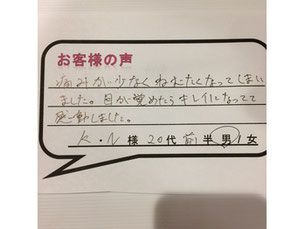 お客様の声
痛みが少なくねむたくなってしまい
ました。目が覚めたらキレイになってて
感動しました。
K・N 様 20代 前半 男/女